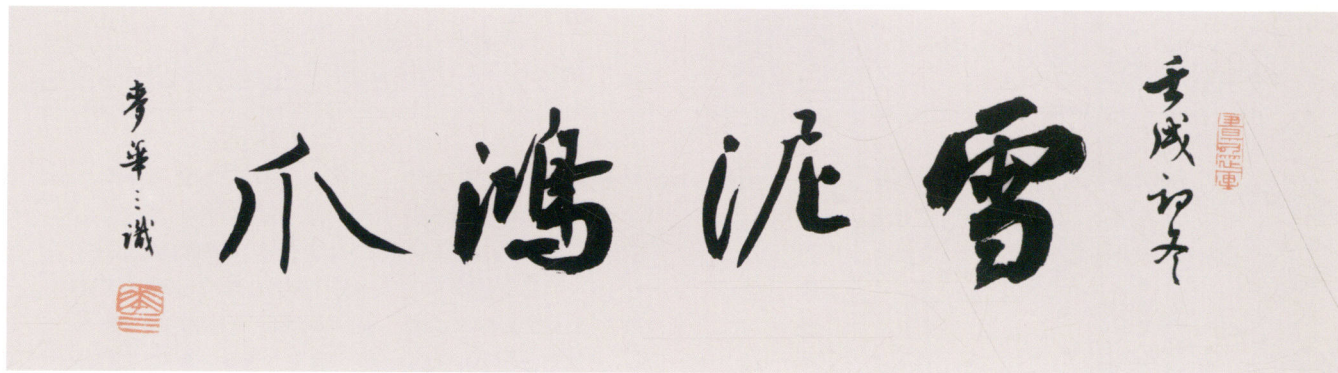 壬戌初冬
雪泥鴻爪
麥華三識